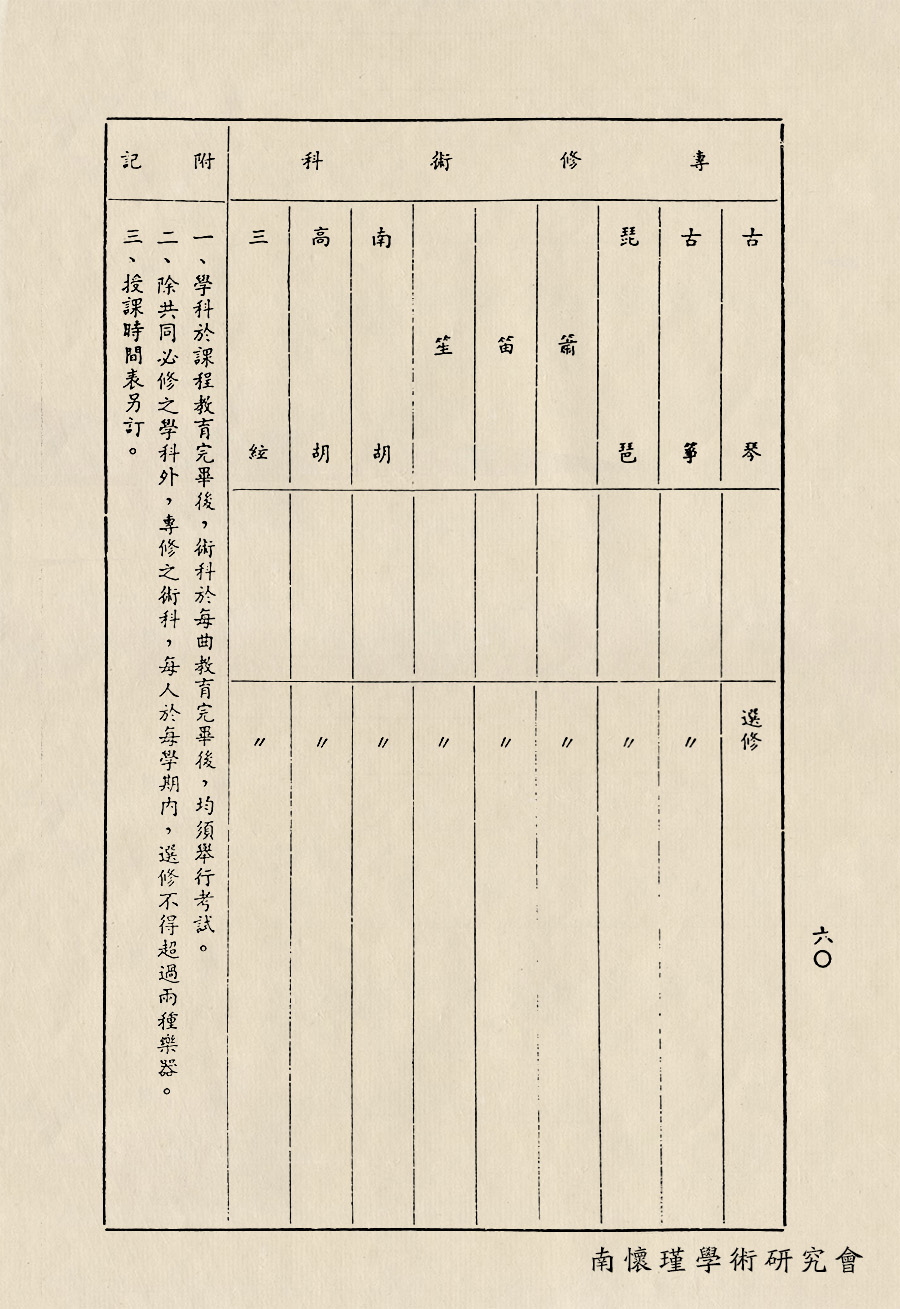 專修術科
古琴
古箏
琵琶
簫
笛
笙
南胡
高胡
三絃
選修
〃
〃
〃
〃
〃
〃
〃
〃
附記
一、學科於課程教育完畢後，術科於每曲教育完畢後，均須舉行考試。
二、除共同必修之學科外，專修之術科，每人於每學期內，選修不得超過兩種樂器。
三、授課時間表另訂。
六〇
南懷瑾學術研究會